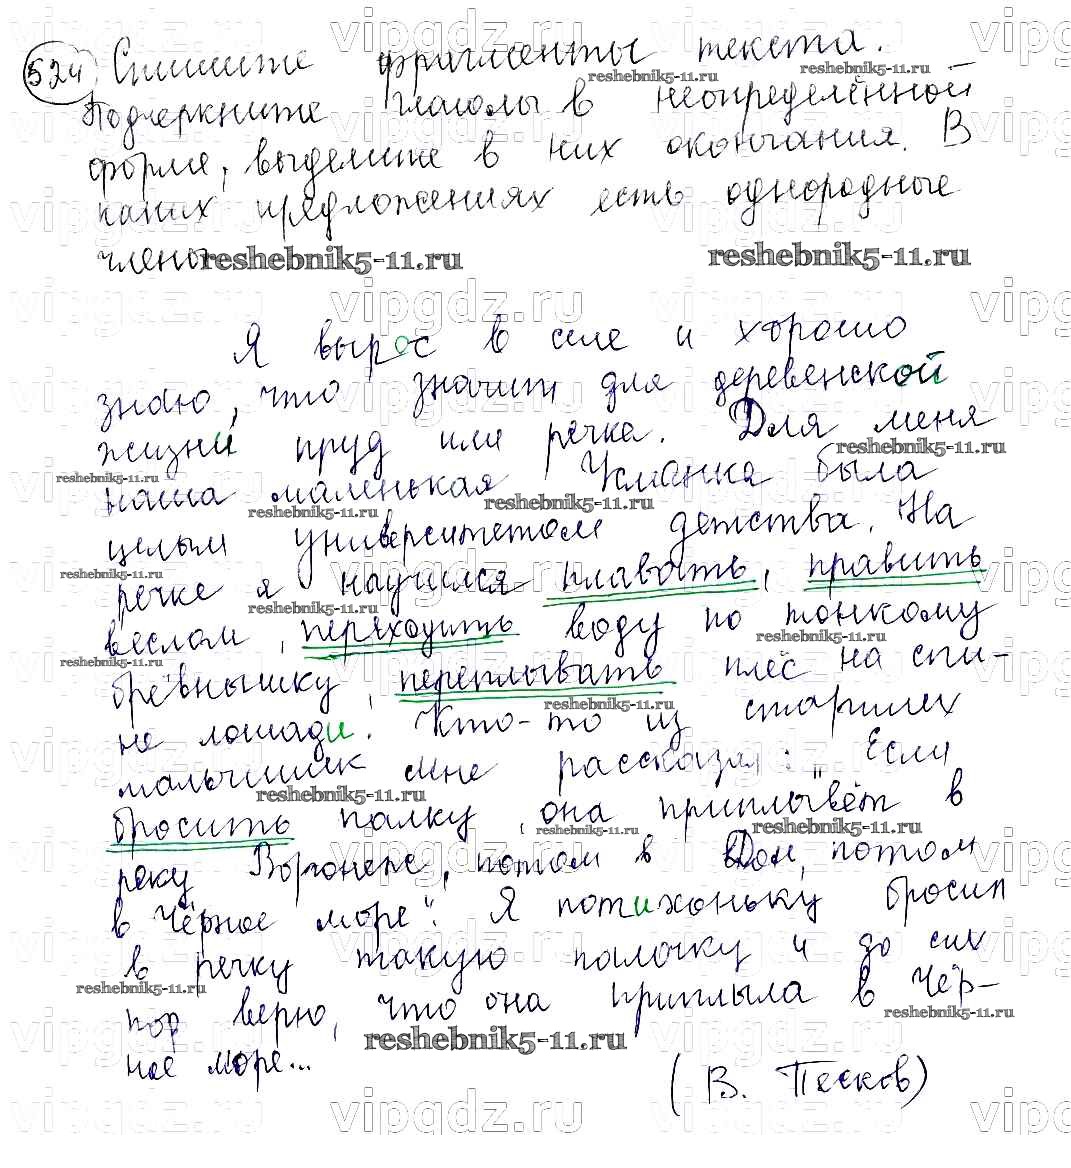 524 Спишите фрагменты текста.
Подчеркните глаголы в неопределённой
форме, выделите в них окончания. В
каких предложениях есть однородные
члены
reshebnik5-11.ru
Я вырос в селе и хорошо
знаю, что значит для деревенской
жизни пруд или речка. Для меня
наша маленькая Усманка была
целым университетом детства. На
речке я научился плавать, править
веслом, переходить воду по тонкому
брёвнышку, переплывать плёс на спи-
не лошади. Кто-то из старших
мальчишек мне рассказал: "Если
бросить палку, она приплывёт в
реку Воронеж, потом в Дон, потом
в Чёрное море". Я потихоньку бросил
в речку такую палочку и до сих
пор верю, что она приплыла в Чёр-
ное море...
reshebnik5-11.ru
(В. Песков)
vipgdz.ru